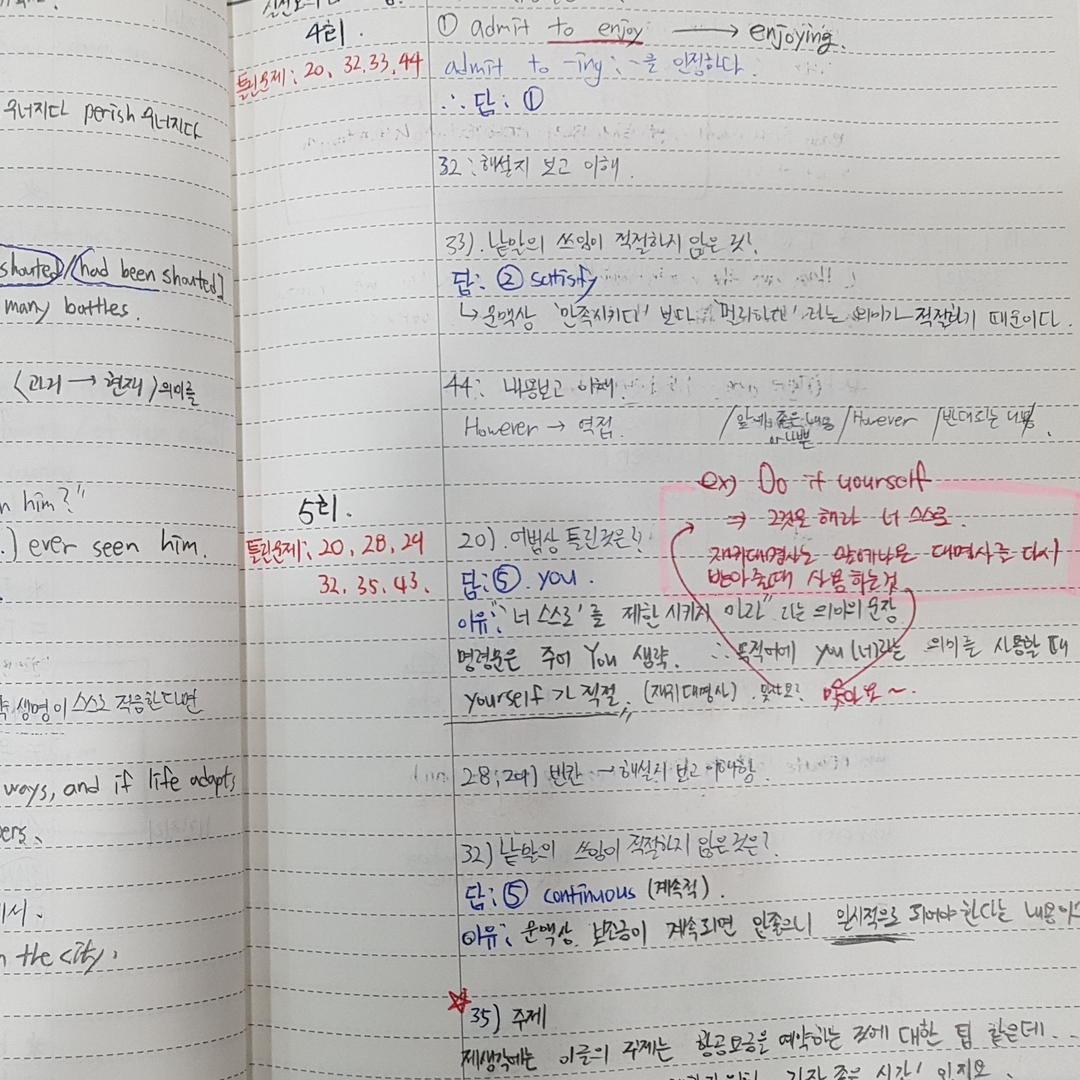 무너지다 perish 무너지다
shouted/had been shouted]
many battles.
〈과거 → 현재〉의미를
n him?"
.) ever seen him.
생명이 스스로 적응한다면
ways, and if life adapts
에서.
n the city.
4회.
틀린문제: 20, 32, 33, 44
① admit to enjoy → enjoying.
admit to -ing: ~를 인정하다.
∴ 답: ①
32: 해설지 보고 이해.
33). 낱말의 쓰임이 적절하지 않은 것!
답: ② satisfy
↳ 문맥상 '만족시키다' 보다 '멀리하다' 라는 의미가 적절하기 때문이다.
44: 내용보고 이해.
However → 역접. /앞에 좋은 내용 or 나쁜 /However /반대되는 내용/.
5회.
틀린문제: 20, 28, 29
32, 35, 43.
ex) Do it yourself
⇒ 그것을 해라 너 스스로.
재귀대명사는 앞에나온 대명사를 다시
받아줄때 사용하는것
20). 어법상 틀린것은?
답: ⑤. you.
이유: "너 스스로'를 제한 시키지 마라" 라는 의미의 문장
명령문은 주어 You 생략. ∴ 목적어에 you (너)라는 의미를 사용할 때
yourself 가 적절. (재귀대명사). 맞나요? 맞아요~.
28, 29) 빈칸 → 해설지 보고 이해함.
32) 낱말의 쓰임이 적절하지 않은것은?
답: ⑤ continuous (계속적).
이유: 문맥상 보조금이 계속되면 안좋으니 일시적으로 되어야 한다는 내용이
☆
35) 주제
제생각에는 이글의 주제는 항공요금을 예약하는 것에 대한 팁 같은데..
가장 좋은 시간! 인지요.